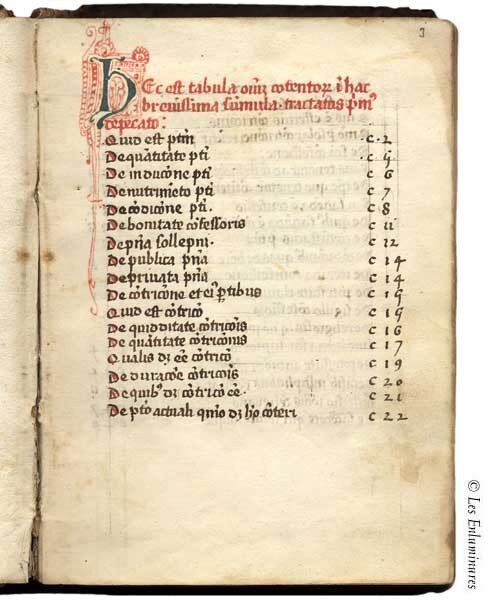 3
HEc est tabula oim̄ cōtentor̄ ī hac
breuissima sūmula. tractatus pͥmꝰ
de pccato:
Quid est pct̄m c. 2
De quātitate pct̄i c. ij
De inductione pct̄i c 6
De nutrimēto pct̄i c. 7
De cōdicōne pct̄i. c. 8
De bonitate cōfessoris c. ii
De pn̄ia sollepni. c. 12
De publica pn̄ia c. 14
De priuata pn̄ia c. 14
De cōtricōne et eiꝰ ꝑtibus c. 15
Quid est cōtricō c. 15
De quidditate cōtricōis c. 16
De quātitate cōtricōnis c. 17
Qualis dꝫ eē cōtricō c. 19
De duracōe cōtricōis c. 20
De quibꝰ dꝫ cōtricō eē. c. 21
De pctō actuali quō dꝫ hō cōteri c. 22
© Les Enluminures